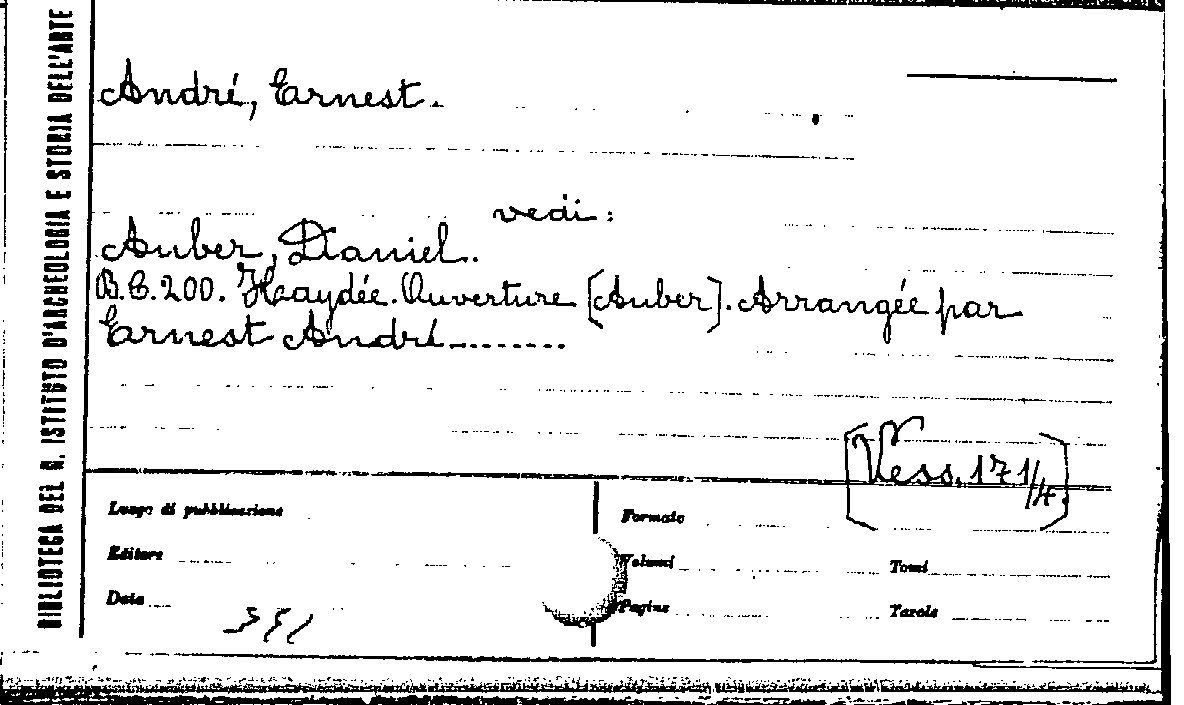 BIBLIOTECA DEL R. ISTITUTO D'ARCHEOLOGIA E STORIA DELL'ARTE
André, Ernest.
vedi:
Auber, Daniel.
B.C.200. Haydée. Ouverture [Auber]. Arrangée par
Ernest André........
[Vess. 171/4.]
Luogo di pubblicazione
Formato
Editore
Volumi
Tomi
Data
Pagine
Tavole